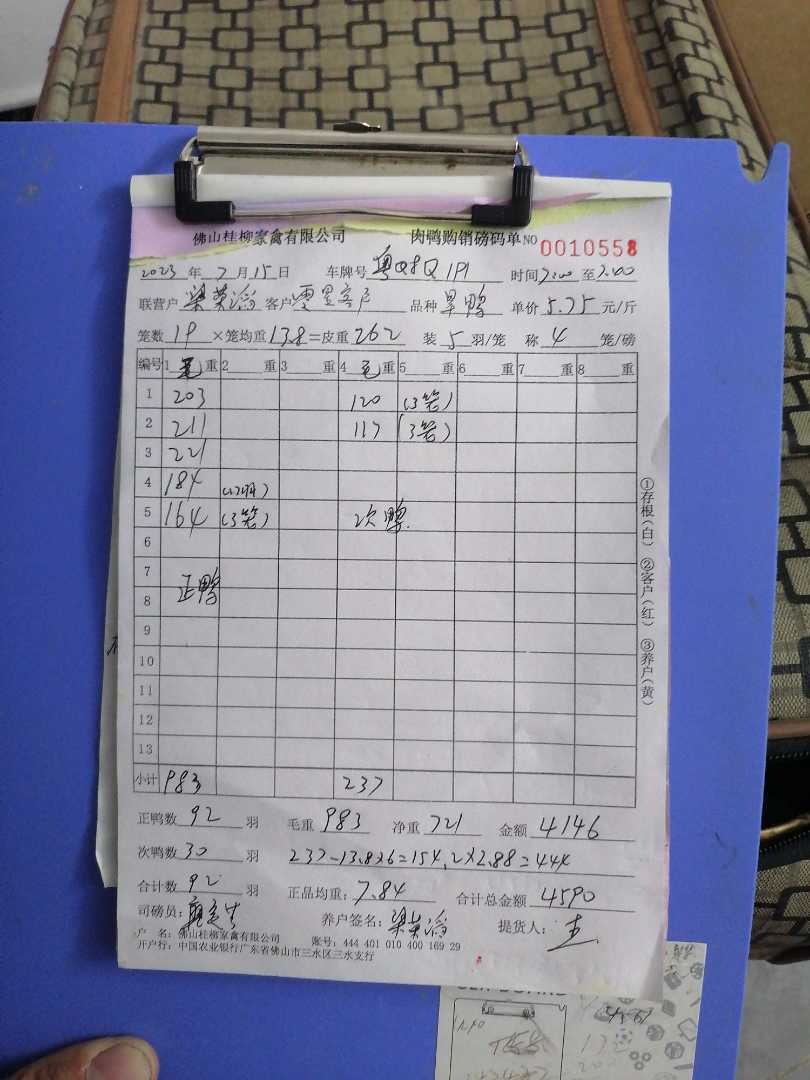 佛山桂柳家禽有限公司 肉鸭购销磅码单 NO 0010558
2023 年 7 月 15 日 车牌号 时间 7:00 至 7:00
联营户 梁英滔 客户 零星客户 品种 旱鸭 单价 5.75 元/斤
笼数 19 ×笼均重 13.8 =皮重 262 装 5 羽/笼 称 4 笼/磅
编号 1 毛 重 2 重 3 重 4 毛 重 5 重 6 重 7 重 8 重
1 203 120 (3笼)
2 211 117 (3笼)
3 221
4 184
5 164 (3笼) 次鸭
6
7 正鸭
8
9
10
11
12
13
小计 983 237
正鸭数 92 羽 毛重 983 净重 721 金额 4146
次鸭数 30 羽 237-13.8×6=154.2×2.88=444
合计数 92 羽 正品均重: 7.84 合计总金额 4590
司磅员: 养户签名: 梁英滔 提货人:
户 名: 佛山桂柳家禽有限公司 账号: 444 401 010 400 169 29
开户行: 中国农业银行广东省佛山市三水区三水支行
①存根(白) ②客户(红) ③养户(黄)